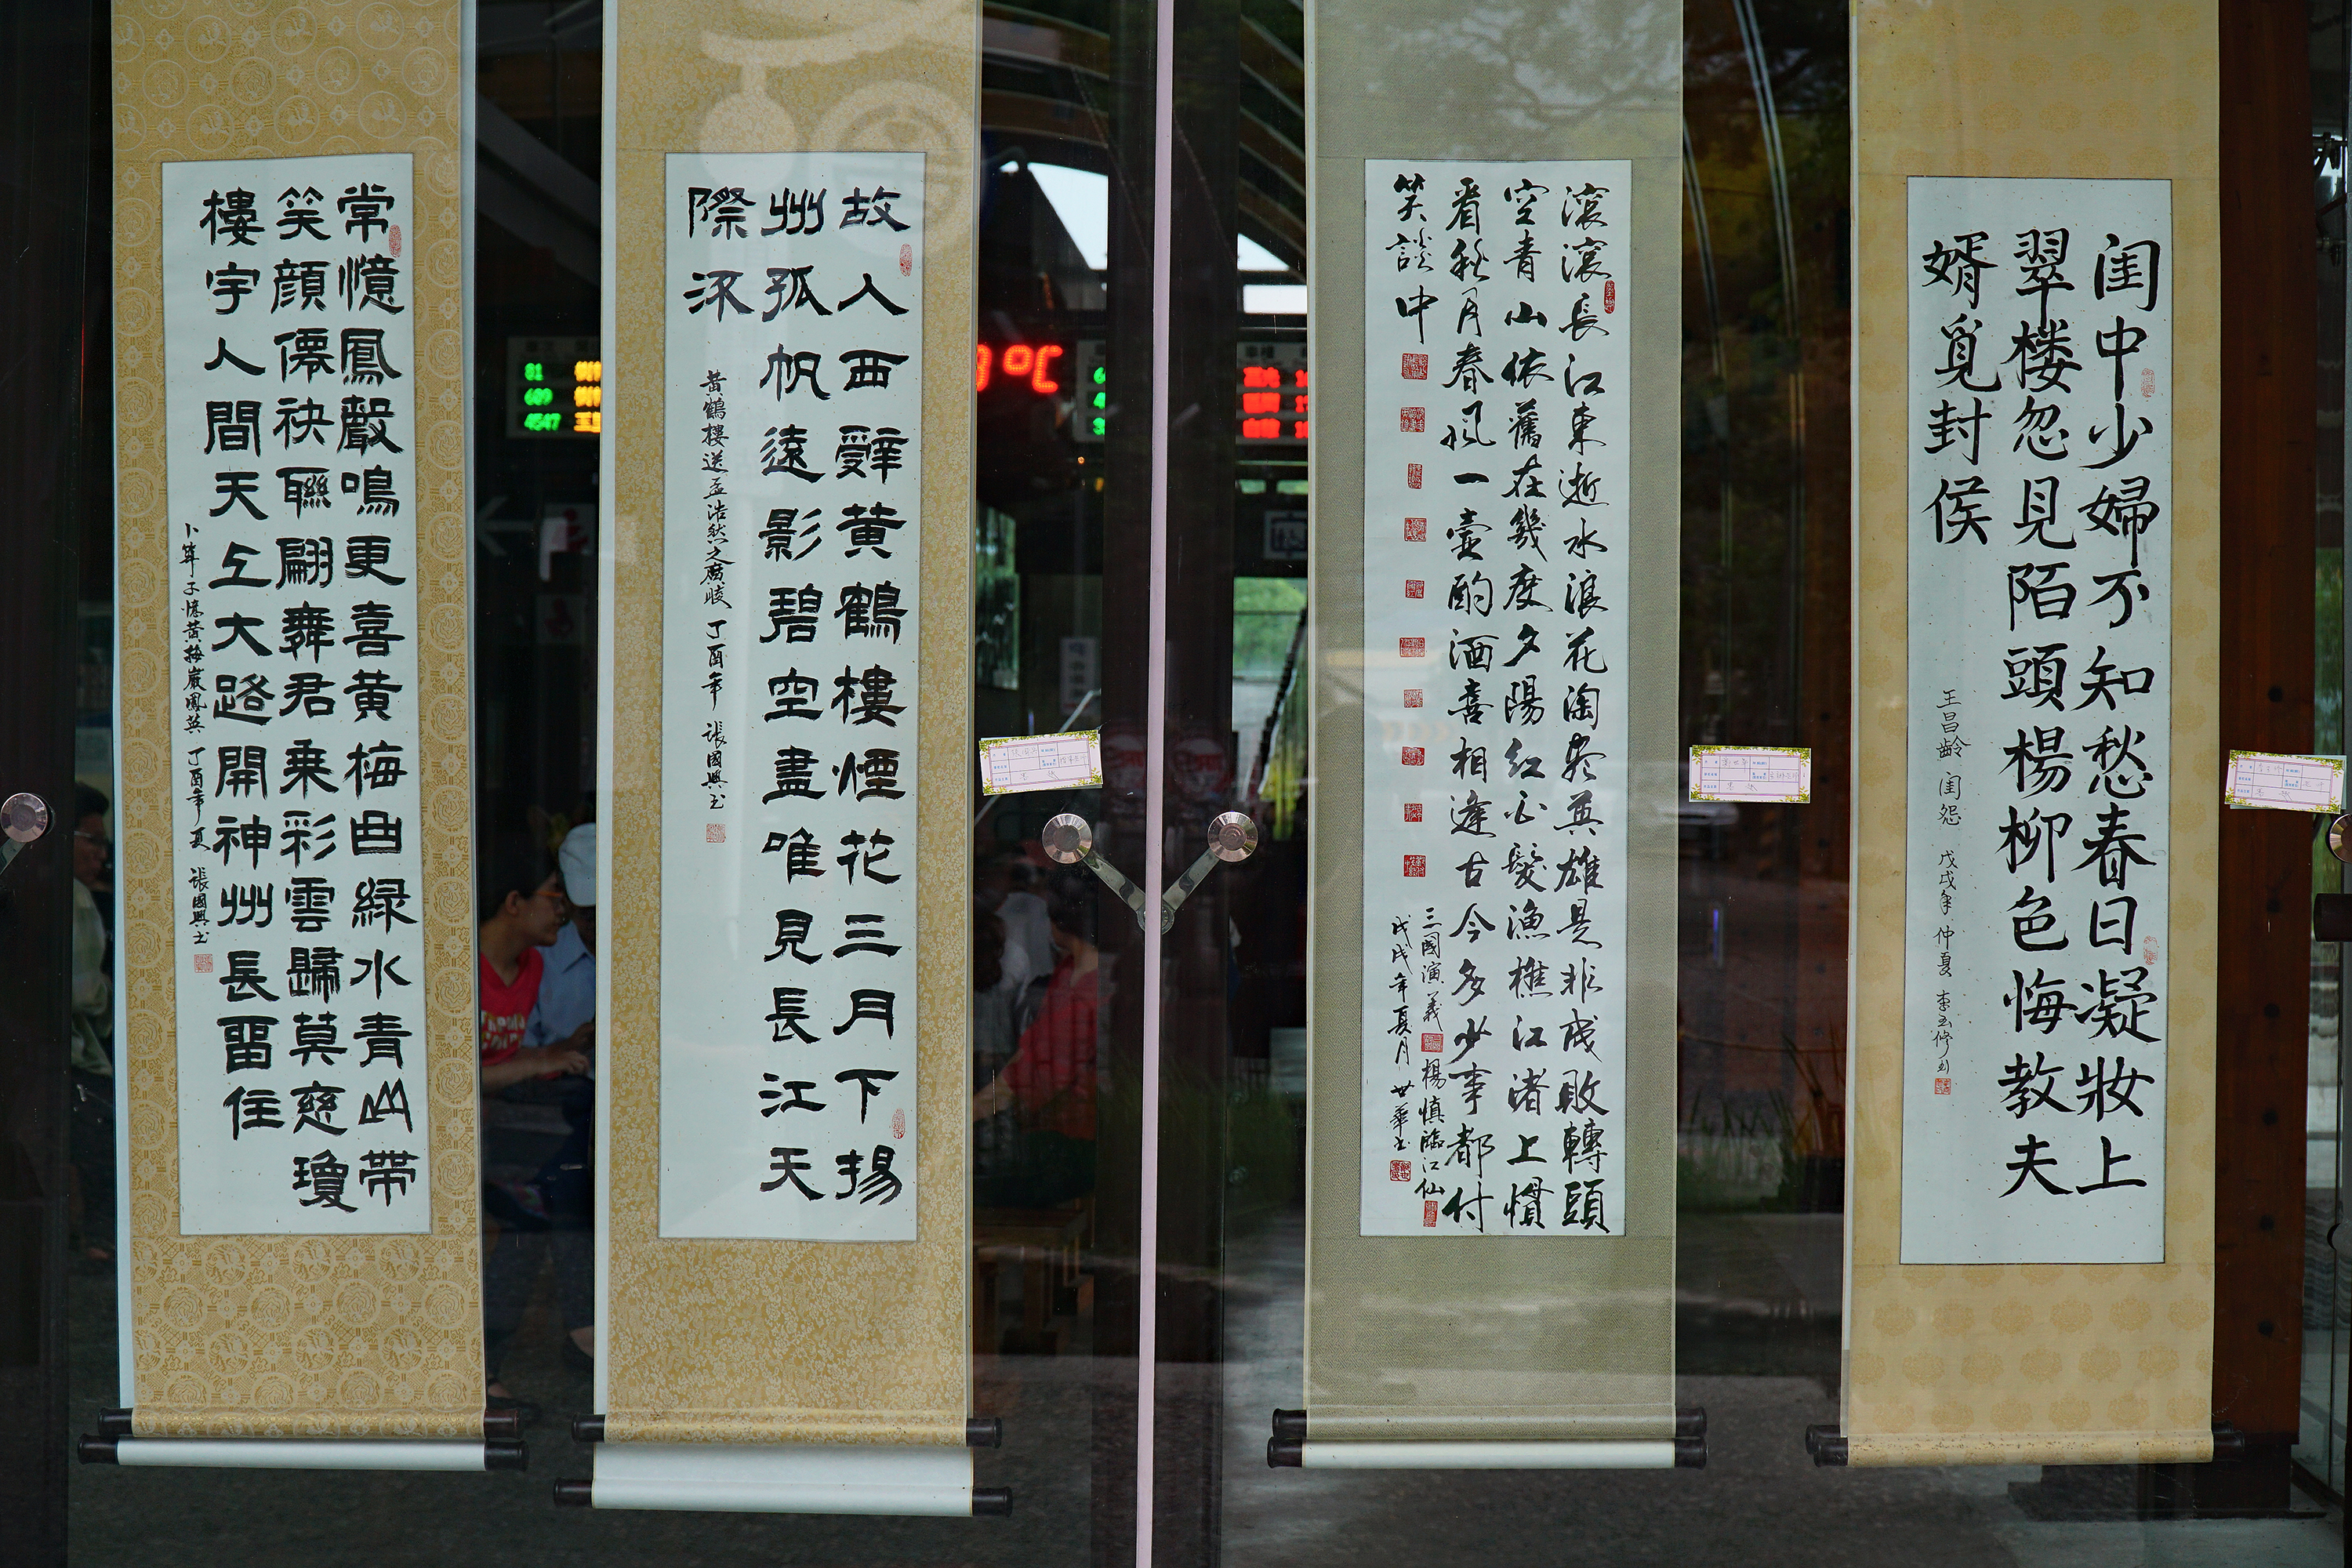 闺中少婦不知愁春日凝妝上
翠楼忽見陌頭楊柳色悔教夫
婿覓封侯
王昌齡 闺怨 戊戌年仲夏 李玉修书
滚滚長江東逝水浪花淘尽英雄是非成敗轉頭
空青山依舊在幾度夕陽红白髮漁樵江渚上慣
看秋月春风一壺酌酒喜相逢古今多少事都付
笑談中
三國演義 楊慎臨江仙
戊戌年夏月 世華书
故人西辭黄鶴樓煙花三月下揚
州孤帆遠影碧空盡唯見長江天
際流
黄鶴樓送孟浩然之廣陵 丁酉年 張國興书
常憶鳳聲鳴更喜黄梅曲緑水青山帶
笑顔僊袂聯翩舞君乘彩雲歸莫慈瓊
樓宇人間天上大路開神州長留住
卜算子憶黄梅嚴鳳英 丁酉年夏 張國興书
81
609
4547
℃